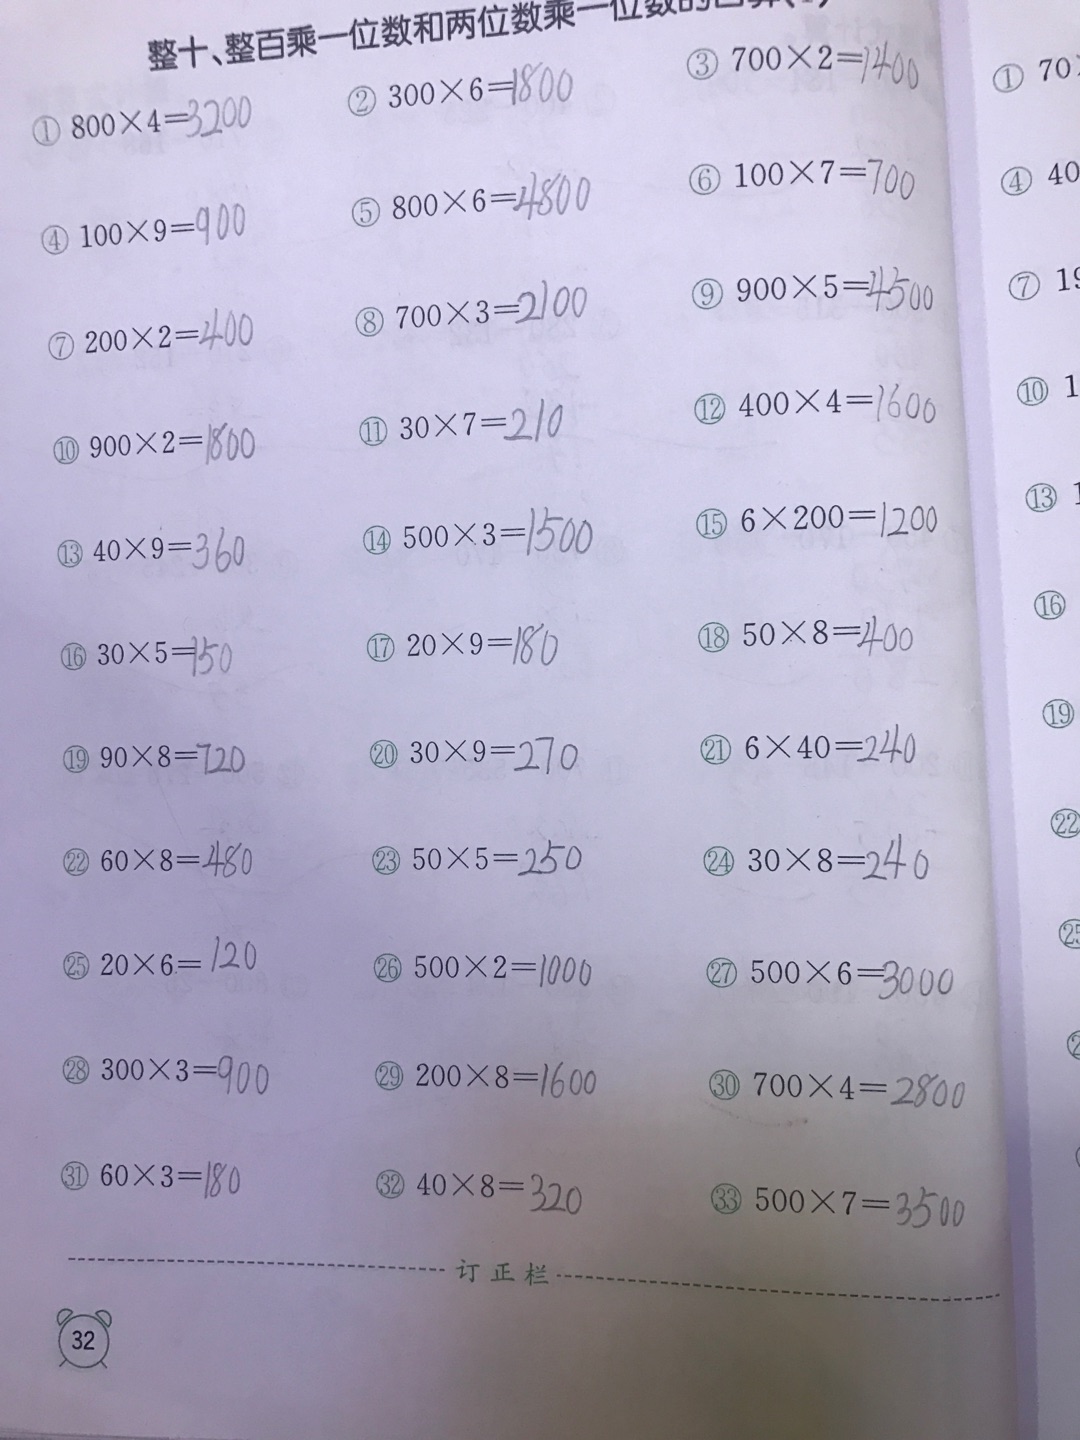 整十、整百乘一位数和两位数乘一位数的口算(1)
① 800×4=3200 ② 300×6=1800 ③ 700×2=1400
④ 100×9=900 ⑤ 800×6=4800 ⑥ 100×7=700
⑦ 200×2=400 ⑧ 700×3=2100 ⑨ 900×5=4500
⑩ 900×2=1800 ⑪ 30×7=210 ⑫ 400×4=1600
⑬ 40×9=360 ⑭ 500×3=1500 ⑮ 6×200=1200
⑯ 30×5=150 ⑰ 20×9=180 ⑱ 50×8=400
⑲ 90×8=720 ⑳ 30×9=270 ㉑ 6×40=240
㉒ 60×8=480 ㉓ 50×5=250 ㉔ 30×8=240
㉕ 20×6=120 ㉖ 500×2=1000 ㉗ 500×6=3000
㉘ 300×3=900 ㉙ 200×8=1600 ㉚ 700×4=2800
㉛ 60×3=180 ㉜ 40×8=320 ㉝ 500×7=3500
订正栏
32
① 70
④ 40
⑦ 19
⑩ 1
⑬ 1
⑯
⑲
㉒
㉕